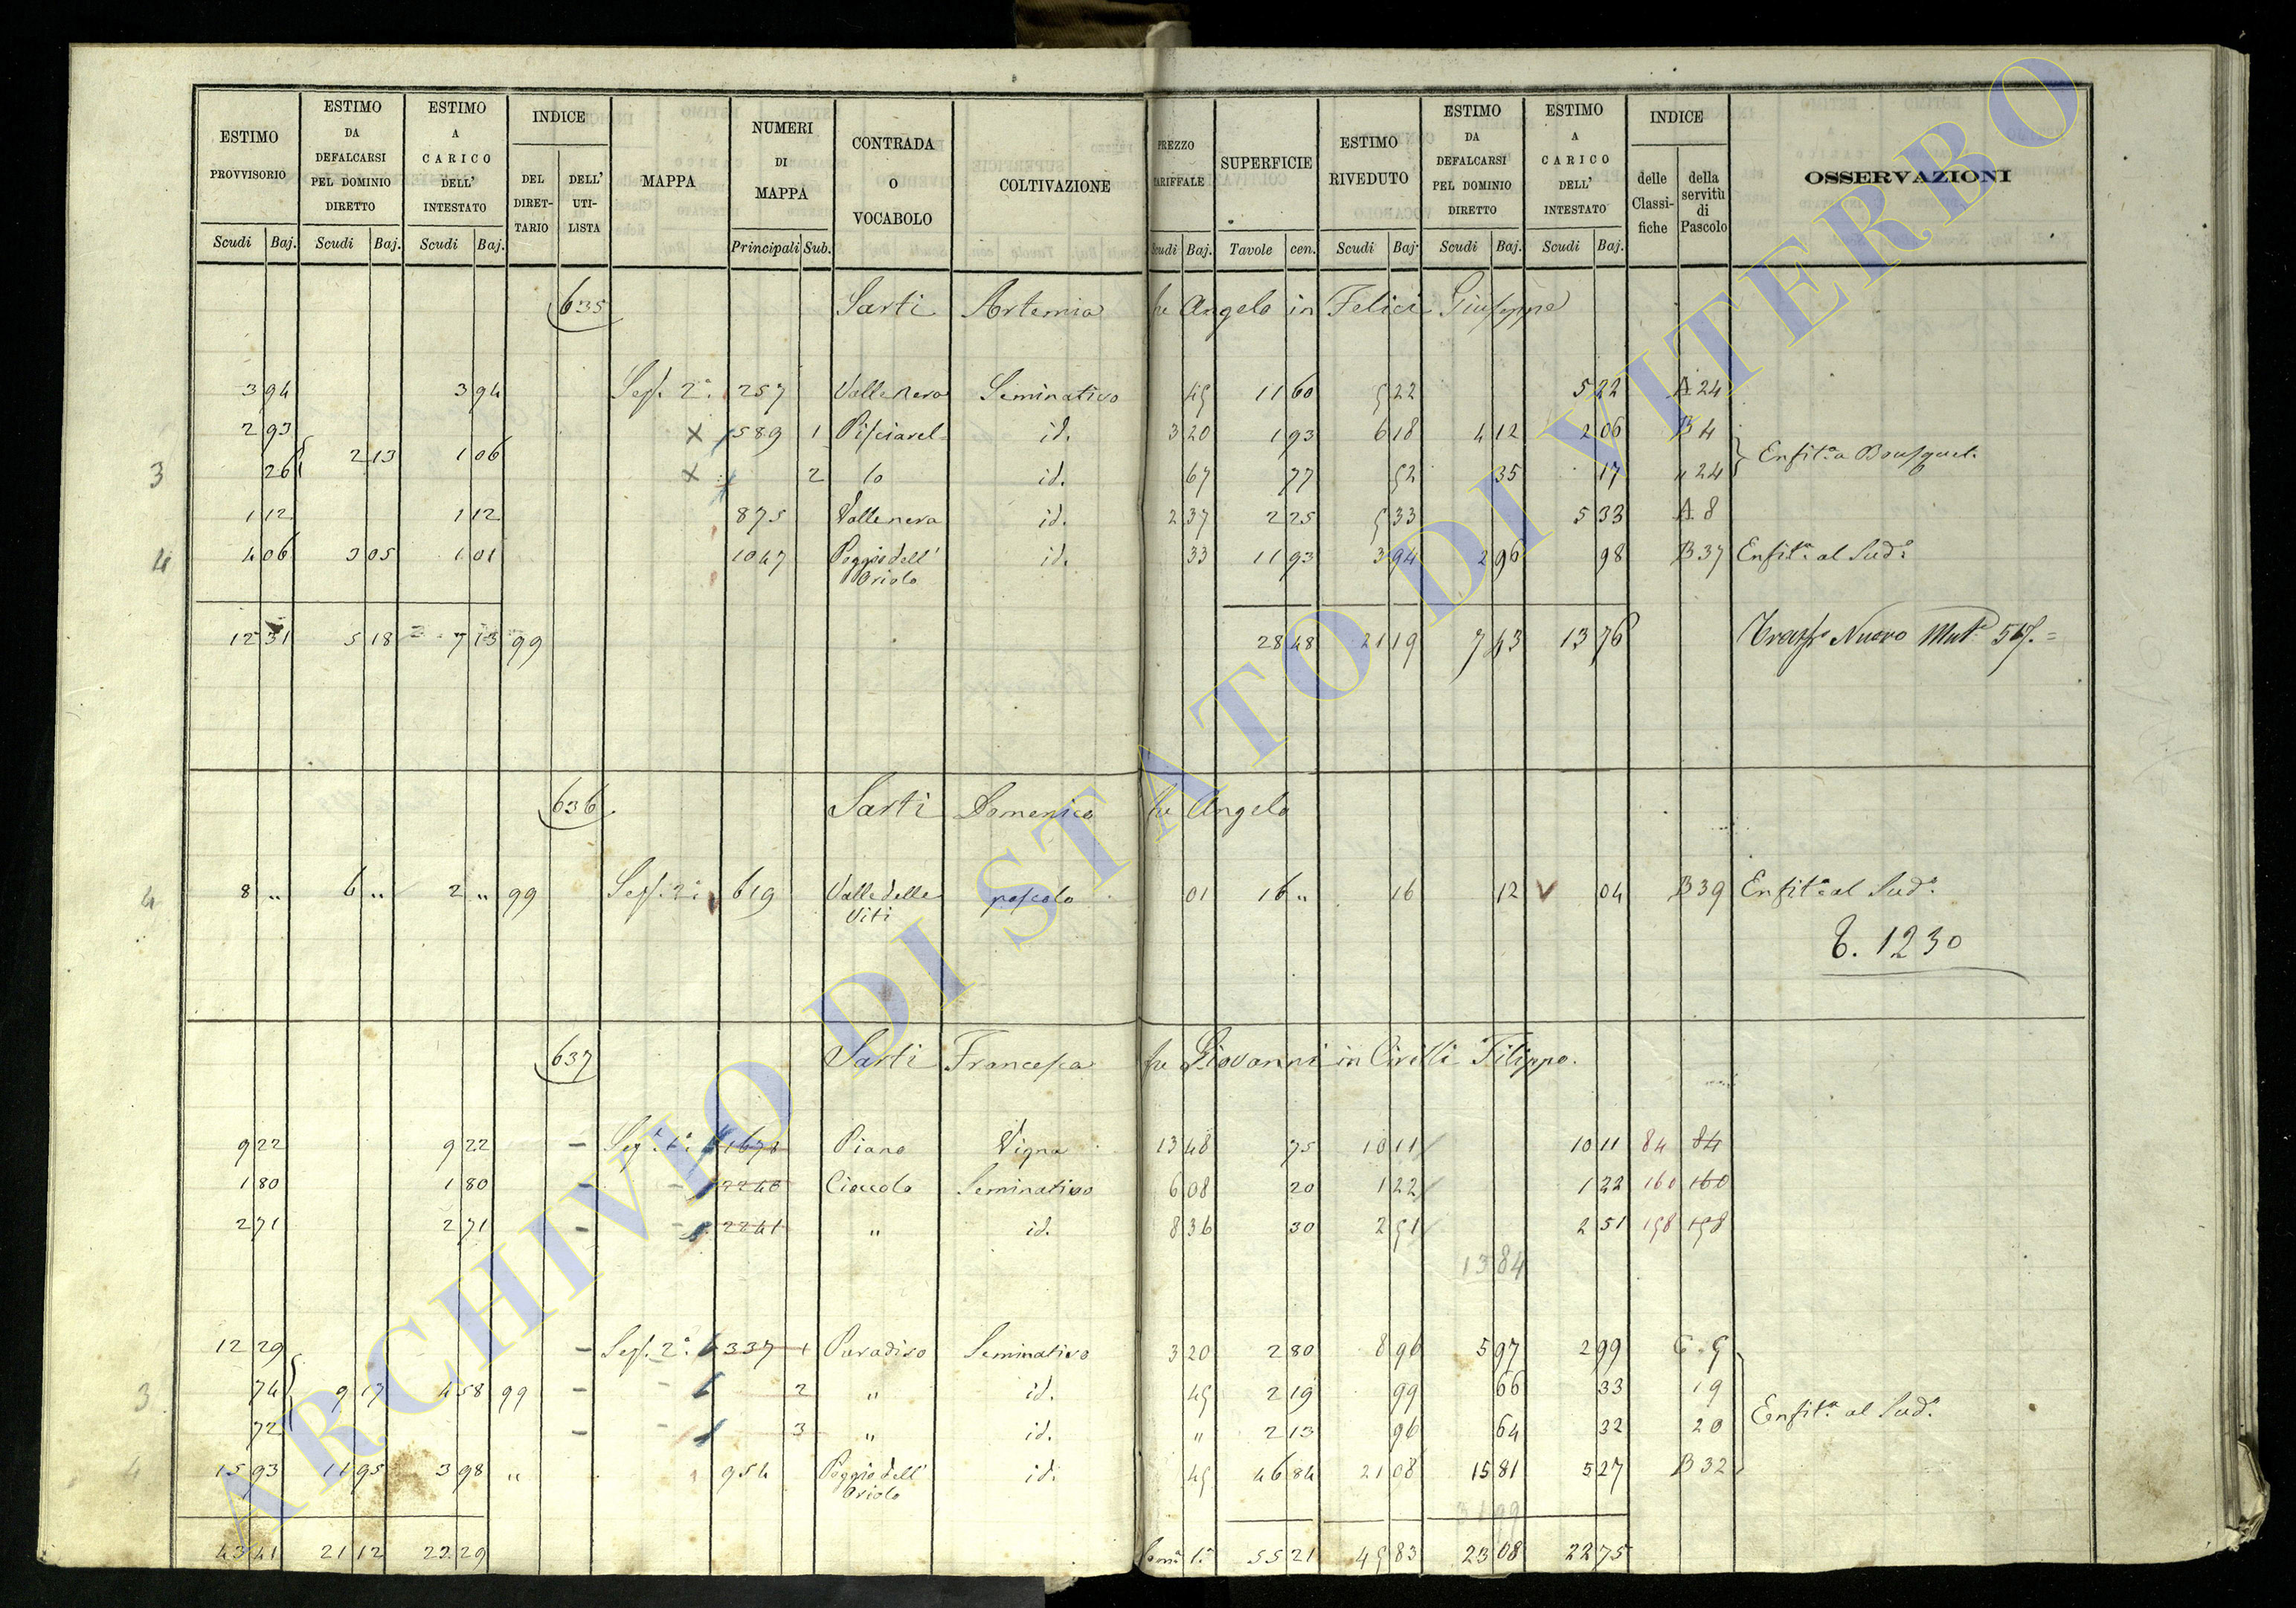 ESTIMO PROVVISORIO | ESTIMO DA DEFALCARSI PEL DOMINIO DIRETTO | ESTIMO A CARICO DELL' INTESTATO | INDICE | MAPPA | NUMERI DI MAPPA | CONTRADA O VOCABOLO | COLTIVAZIONE | PREZZO TARIFFALE | SUPERFICIE | ESTIMO RIVEDUTO | ESTIMO DA DEFALCARSI PEL DOMINIO DIRETTO | ESTIMO A CARICO DELL' INTESTATO | INDICE | OSSERVAZIONI
DEL DIRET-TARIO | DELL' UTI-LISTA | delle Classi-fiche | della servitù di Pascolo
Scudi | Baj. | Scudi | Baj. | Scudi | Baj. | Principali | Sub. | Scudi | Baj. | Tavole | cen. | Scudi | Baj. | Scudi | Baj. | Scudi | Baj.
635 Sarti Artemia fu Angelo in Felici Giuseppe
3 94 | 3 94 | Sez. 2a | 257 | Valle nera | Seminativo | 45 | 11 60 | 5 22 | 5 22 | A 24
2 93 | X | 589 | 1 | Pisciarel= | id. | 3 20 | 1 93 | 6 18 | 4 12 | 2 06 | B 4
3 | 26 | 2 13 | 1 06 | X | 2 | lo | id. | 67 | 77 | 52 | 35 | 17 | " 24 | Enfit.a a Bousquet.
1 12 | 1 12 | 875 | Valle nera | id. | 2 37 | 2 25 | 5 33 | 5 33 | A 8
4 | 4 06 | 3 05 | 1 01 | 1047 | Poggio dell' Oriolo | id. | 33 | 11 93 | 3 94 | 2 96 | 98 | B 37 | Enfit.a al Sud.o
12 31 | 5 18 | 7 13 | 99 | 28 48 | 21 19 | 7 43 | 13 76 | Nuovo
636 Sarti Domenico fu Angelo
4 | 8 " | 6 " | 2 " | 99 | Sez. 2a | 619 | Valle delle Viti | pascolo | 01 | 16 " | 16 | 12 | 04 | B 39 | Enfit.a al Sud.o
T. 1230
637 Sarti Francesca fu Giovanni in Civilli Filippo.
9 22 | 9 22 | Sez. 1a | 1678 | Piano | Vigna | 13 48 | 75 | 10 11 | 10 11 | 84 | 84
1 80 | 1 80 | 2240 | Cioccolo | Seminativo | 6 08 | 20 | 1 22 | 1 22 | 160 | 160
2 71 | 2 71 | 2241 | " | id. | 8 36 | 30 | 2 51 | 2 51 | 158 | 158
13 84
12 29 | Sez. 2a | 337 | 1 | Paradiso | Seminativo | 3 20 | 2 80 | 8 96 | 5 97 | 2 99 | C. 5
3 | 74 | 9 17 | 4 58 | 99 | 2 | " | id. | 45 | 2 19 | 99 | 66 | 33 | 19
72 | 3 | " | id. | " | 2 13 | 96 | 64 | 32 | 20 | Enfit.a al Sud.o
4 | 15 93 | 11 95 | 3 98 | " | 954 | Poggio dell' Oriolo | id. | 45 | 46 84 | 21 08 | 15 81 | 5 27 | B 32
31 99
43 41 | 21 12 | 22 29 | 55 21 | 45 83 | 23 08 | 22 75
ARCHIVIO DI STATO DI VITERBO